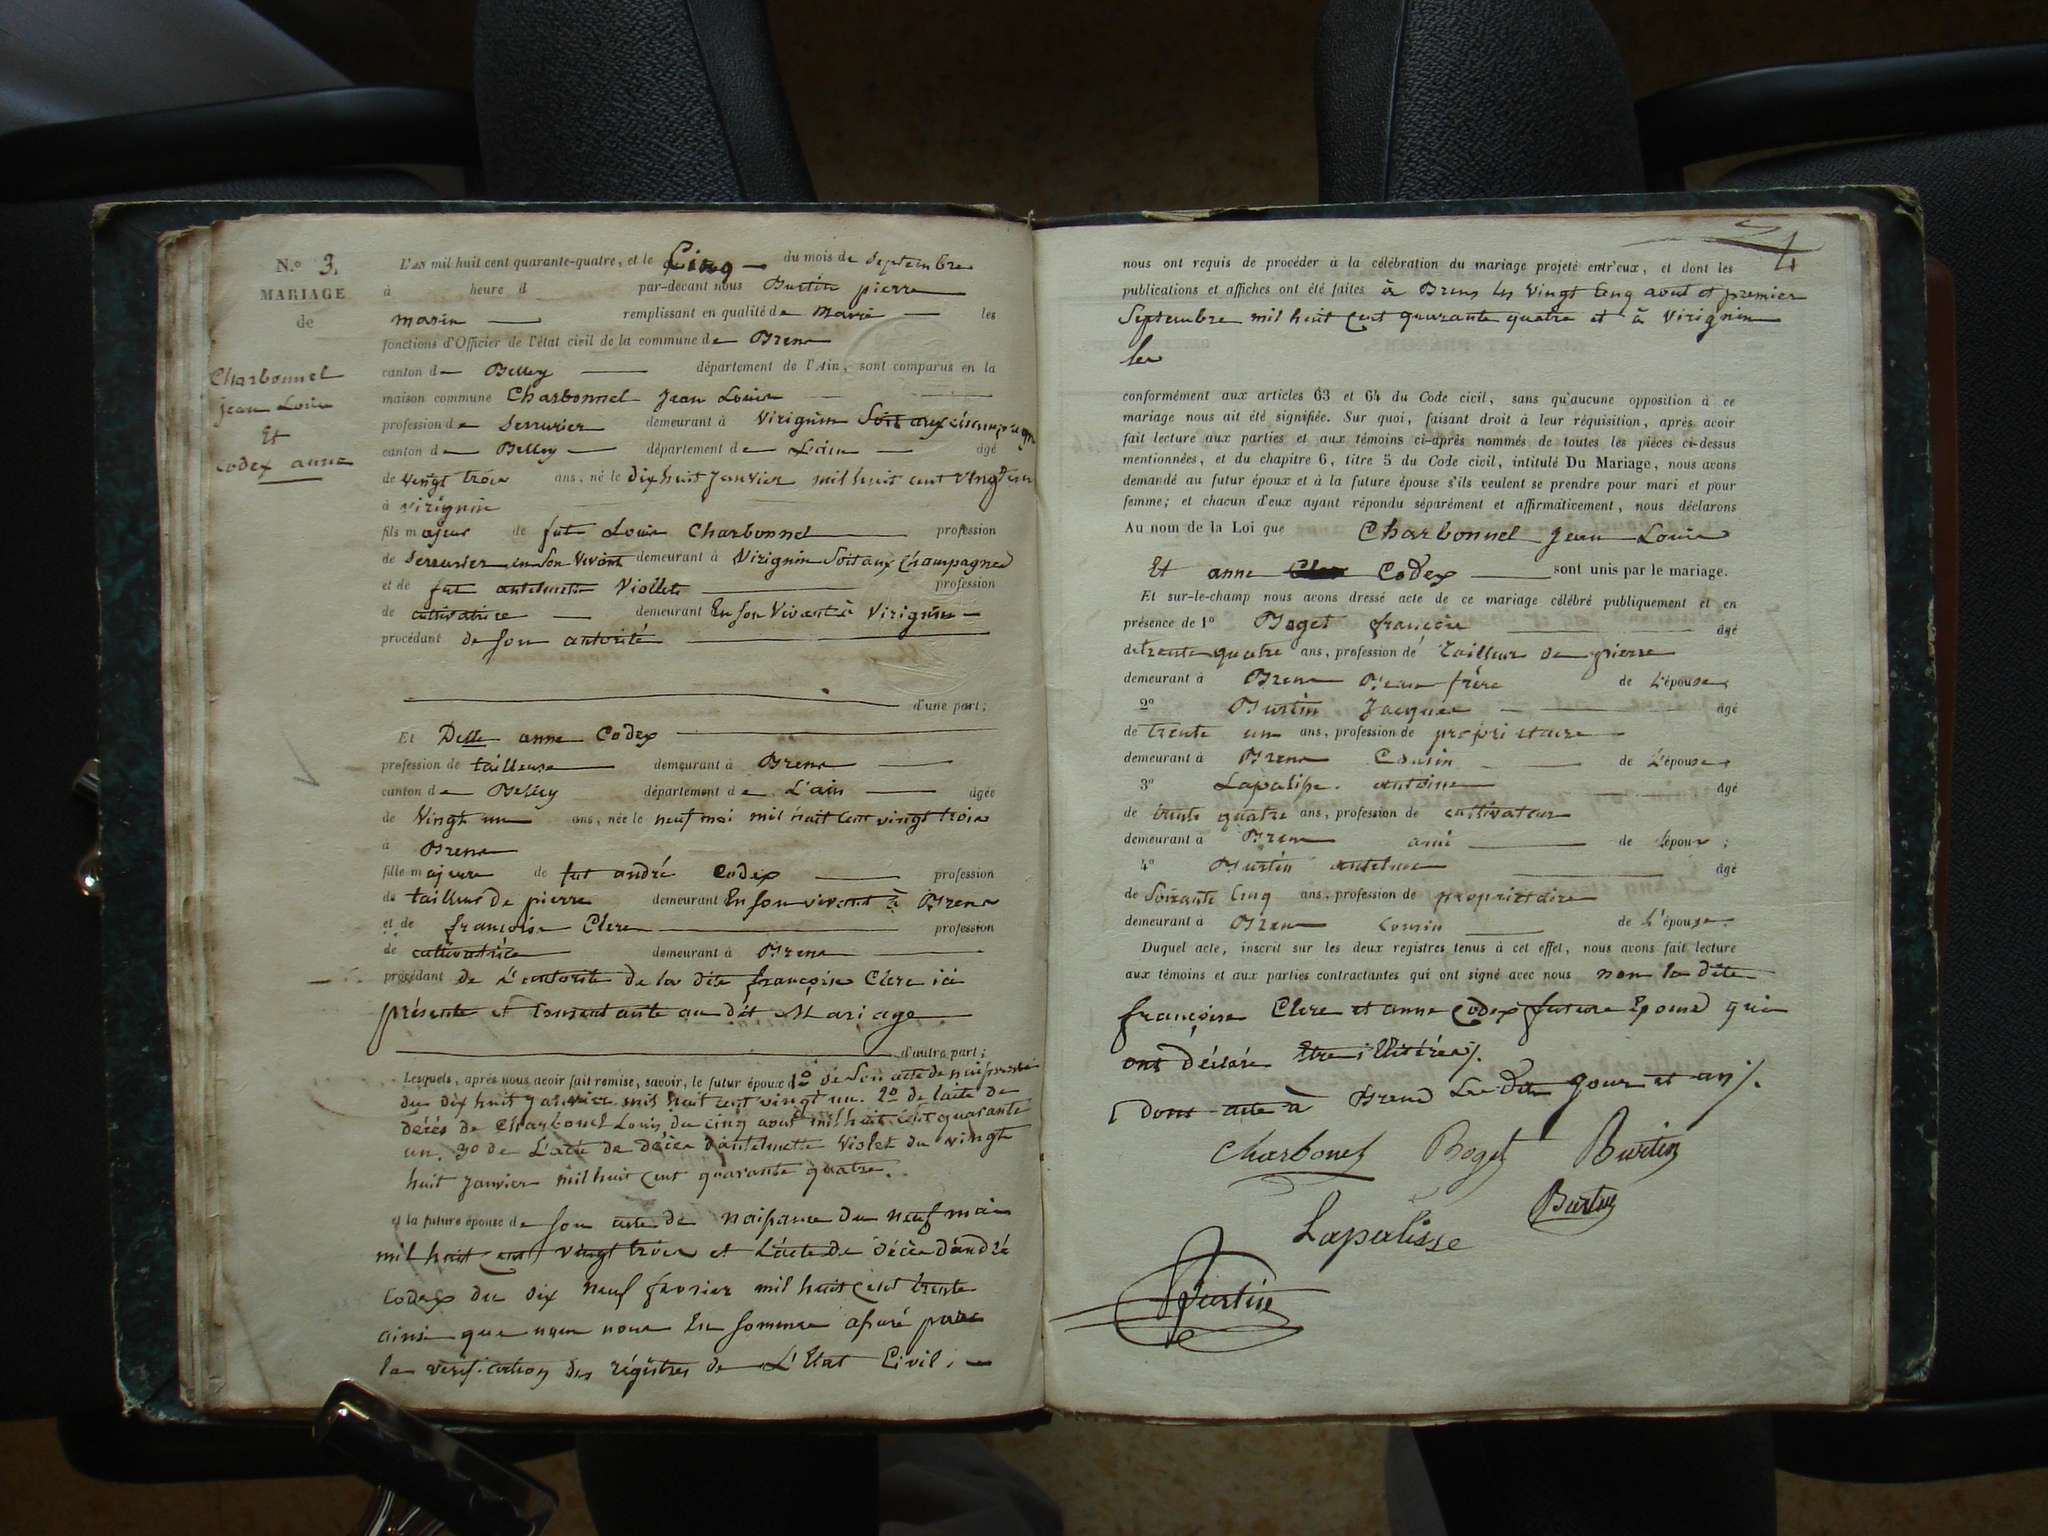 N.º 3.
MARIAGE
de
Charbonnel
jean Louis
Et
Codex anne
L'AN mil huit cent quarante-quatre, et le Cinq du mois de Septembre
à heure d par-devant nous Burtin pierre
marin remplissant en qualité de Maire les
fonctions d'Officier de l'état civil de la commune de Brens
canton de Belley département de l'Ain, sont comparus en la
maison commune Charbonnel Jean Louis
profession de Serrurier demeurant à Virignin Soit aux champagnes
canton de Belley département de L'ain âgé
de vingt trois ans, né le dix huit Janvier mil huit cent vingt un
à virignin
fils majeur de fut Louis Charbonnel profession
de Serrurier en Son Vivant demeurant à Virignin Soit aux Champagnes
et de fut antelmette Viollet profession
de cultivatrice demeurant En son Vivant à Virignin
procédant de son autorité
d'une part;
Et Delle anne Codex
profession de tailleuse demeurant à Brens
canton de Belley département de L'ain âgée
de Vingt un ans, née le neuf mai mil huit cent vingt trois
à Brens
fille majeure de fut andré Codex profession
de tailleur de pierre demeurant En son vivant à Brens
et de françoise Clere profession
de cultivatrice demeurant à Brens
procédant de L'autorité de la dite françoise Clere ici
présente et Consentante au dit Mariage
d'autre part;
Lesquels, après nous avoir fait remise, savoir, le futur époux d 1º de Son acte de naissance
du dix huit janvier mil huit cent vingt un. 2º de lacte de
décès de Charbonel Louis du cinq aout mil huit cent quarante
un. 3º de L'acte de décès d'antelmette Violet du vingt
huit Janvier mil huit cent quarante quatre.
et la future épouse de son acte de Naissance du neuf mai
mil huit cent vingt trois et L'acte de décès d'andré
Codex du dix neuf fevrier mil huit cent trente
ainsi que nous nous En sommes assuré par
la verification des régistres de L'Etat Civil.
4
nous ont requis de procéder à la célébration du mariage projeté entr'eux, et dont les
publications et affiches ont été faites à Brens les Vingt Cinq aout et premier
Septembre mil huit cent quarante quatre et à Virignin
les
conformément aux articles 63 et 64 du Code cicil, sans qu'aucune opposition à ce
mariage nous ait été signifiée. Sur quoi, faisant droit à leur réquisition, après avoir
fait lecture aux parties et aux témoins ci-après nommés de toutes les pièces ci-dessus
mentionnées, et du chapitre 6, titre 5 du Code civil, intitulé Du Mariage, nous avons
demandé au futur époux et à la future épouse s'ils veulent se prendre pour mari et pour
femme; et chacun d'eux ayant répondu séparément et affirmativement, nous déclarons
Au nom de la Loi que Charbonnel Jean Louis
Et anne Codex sont unis par le mariage.
Et sur-le-champ nous avons dressé acte de ce mariage célébré publiquement et en
présence de 1º Boget françois âgé
de trente quatre ans, profession de tailleur de pierre
demeurant à Brens Beau frère de L'épouse,
2º Burtin Jacques âgé
de trente un ans, profession de propriétaire
demeurant à Brens Cousin de L'épouse,
3º Lapalisse antoine âgé
de trente quatre ans, profession de cultivateur
demeurant à Brens ami de l'époux;
4º Burtin antelme âgé
de Soixante Cinq ans, profession de propriétaire
demeurant à Brens Cousin de L'épouse
Duquel acte, inscrit sur les deux registres tenus à cet effet, nous avons fait lecture
aux témoins et aux parties contractantes qui ont signé avec nous non la dite
françoise Clere et anne Codex future Epouse qui
ont déclaré Etre illitérés/.
dont acte à Brens Le dit jour et an/.
Charbonel Boget Burtin
Burtin
Lapalisse
Burtin